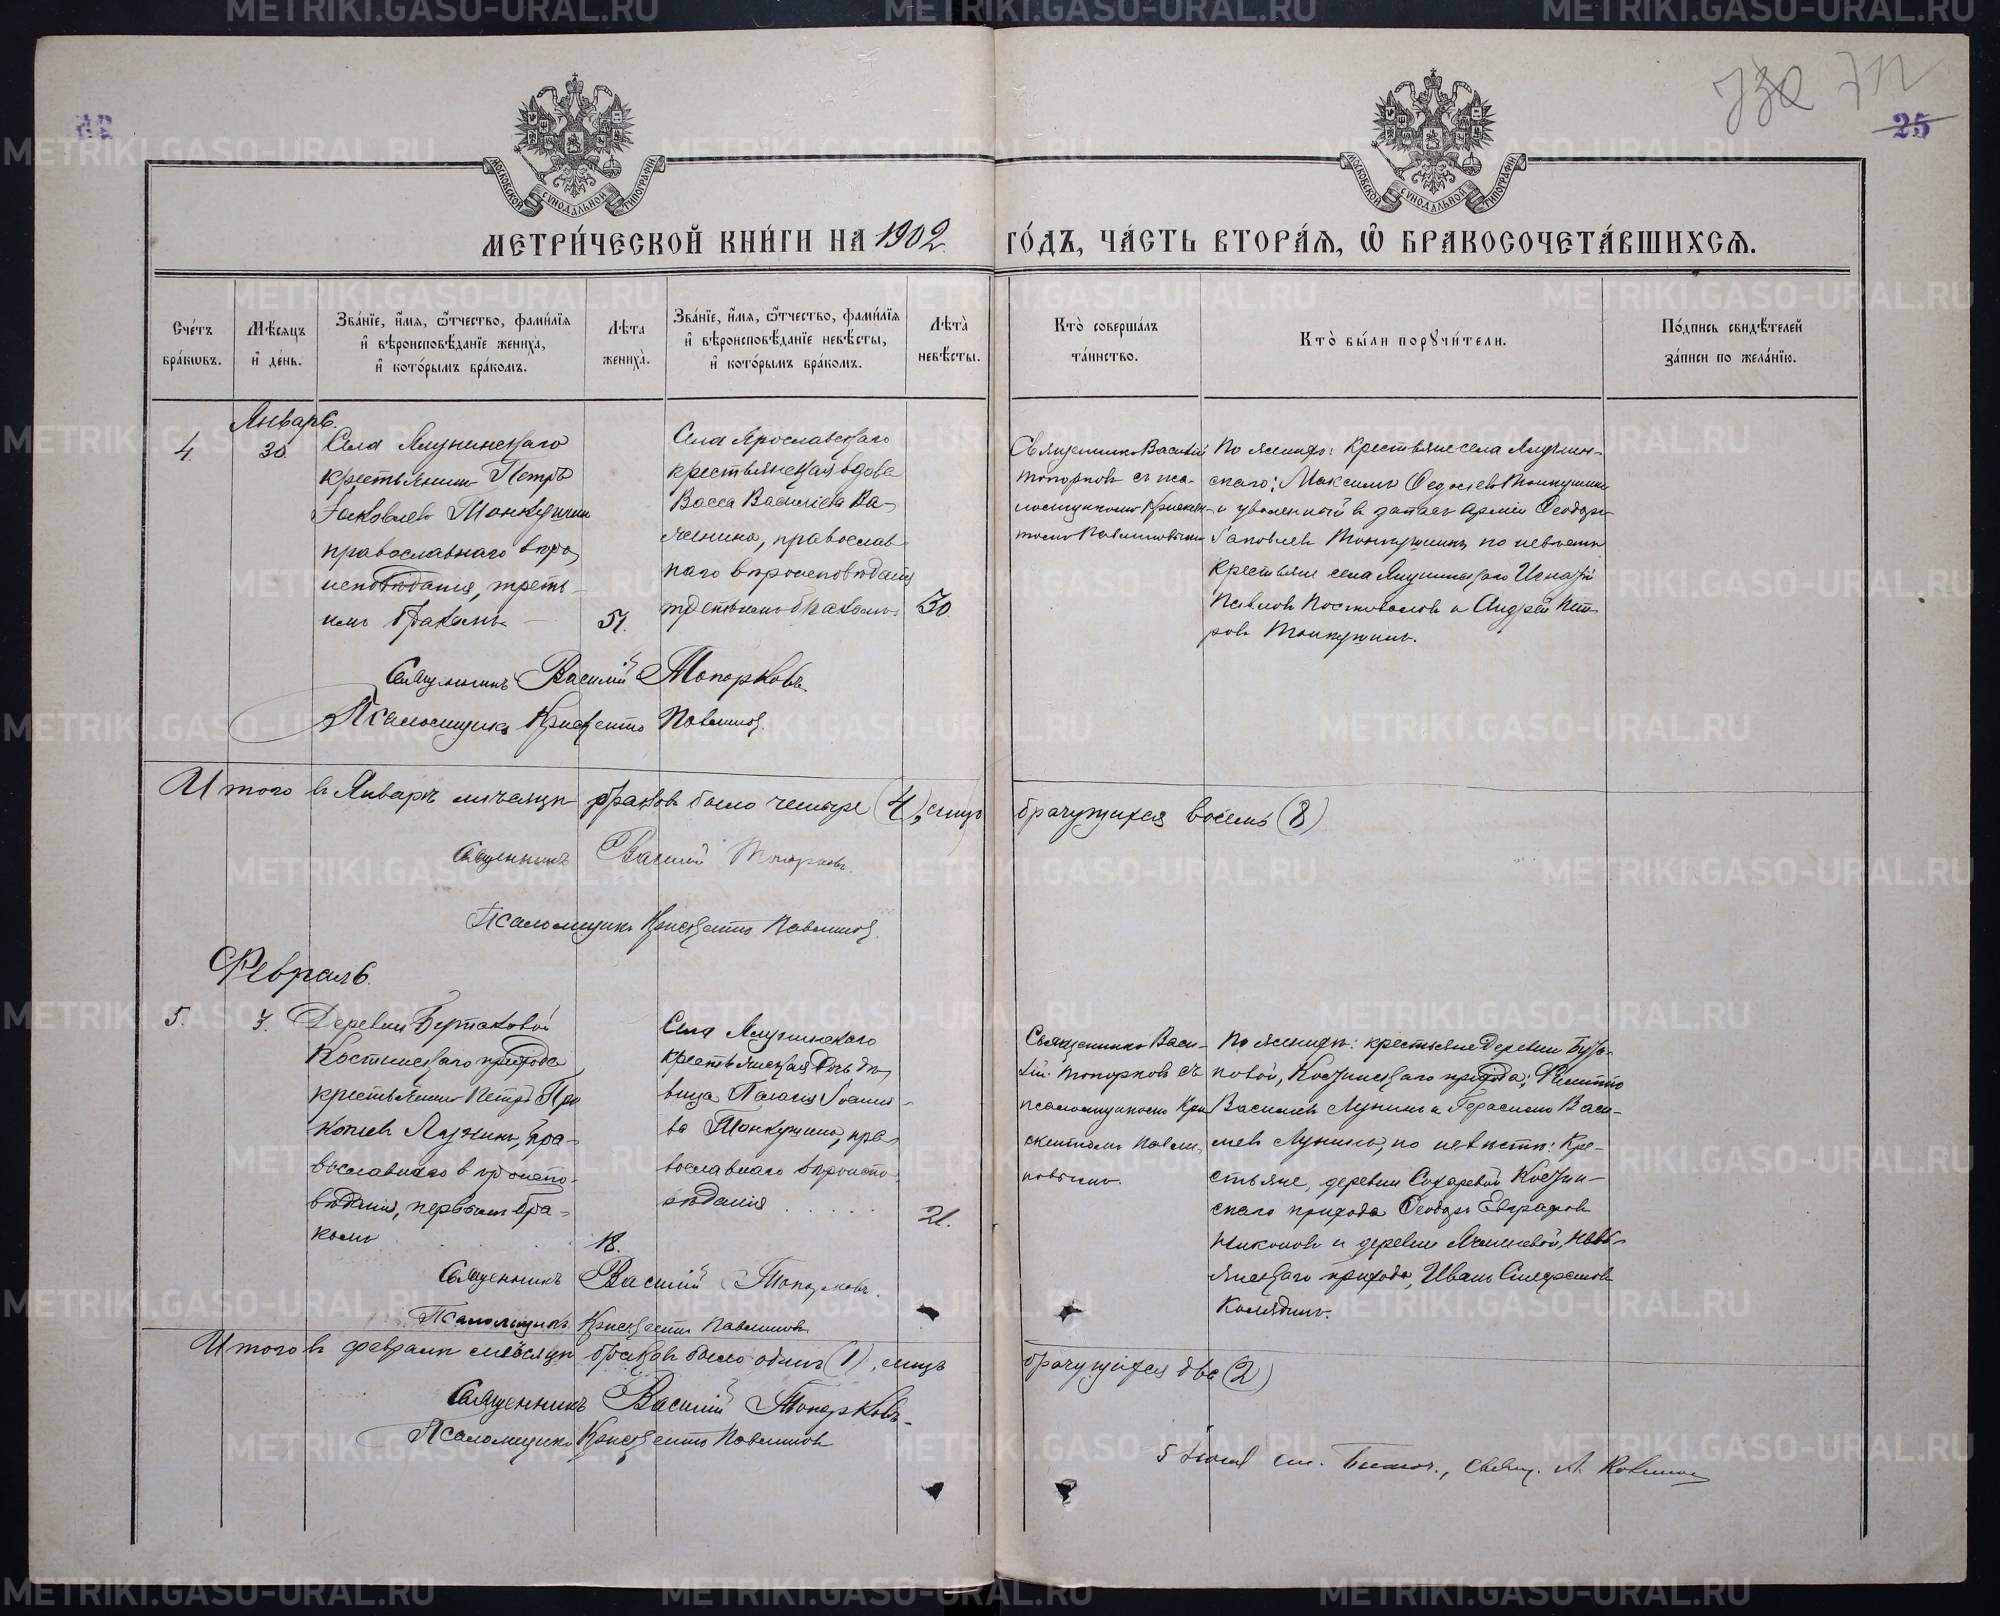 730 712
25
МОСКОВСКОЙ СУНОДАЛЬНОЙ ТИПОГРАФІИ
МОСКОВСКОЙ СУНОДАЛЬНОЙ ТИПОГРАФІИ
МЕТРИ́ЧЕСКОЙ КНИ́ГИ НА 1902 ГО́ДЪ, ЧА́СТЬ ВТОРА́Я, Ѽ БРАКОСОЧЕТА́ВШИХСЯ.
Сче́тъ бра́кѡвъ.
Мѣ́сяцъ и҆ де́нь.
Зва́нїе, и҆́мя, ѻ҆́тчество, фами́лїя
и҆ вѣроисповѣ́данїе жениха̀,
и҆ кото́рымъ бра́комъ.
Лѣ́та жениха̀.
Зва́нїе, и҆́мя, ѻ҆́тчество, фами́лїя
и҆ вѣроисповѣ́данїе невѣ́сты,
и҆ кото́рымъ бра́комъ.
Лѣ́та невѣ́сты.
Кто̀ соверша́лъ та́инство.
Кто̀ бы́ли порꙋчи́тели.
По́дпись свидѣ́телей
за́писи по жела́нїю.
Январь.
4.
30.
Села Ялунинскаго
крестьянинъ Петръ
Іаковлевъ Тонкушинъ
православнаго вѣро
исповѣданія, треть-
имъ бракомъ
51.
Села Ярославскаго
крестьянская вдова
Васса Василіева Ва-
женина, православ
наго вѣроисповѣданія
третьимъ бракомъ
50.
Священникъ Василій
Топорковъ съ пса-
ломщикомъ Крискен-
томъ Павлиновымъ
По женихѣ: Крестьяне села Ялунин-
скаго: Максимъ Федосіевъ Тонкушинъ
и уволенный въ запасъ арміи Ѳеодоръ
Іаковлевъ Тонкушинъ по невѣстѣ
крестьяне села Ялунинскаго Игнатій
Павловъ Постноваловъ и Андрей Пет-
ровъ Тонкушинъ.
Священникъ Василій Топорковъ.
Псаломщикъ Крискентъ Павлиновъ.
Итого въ Январѣ мѣсяцѣ браковъ было четыре (4), лицъ брачущихся восемь (8)
Священникъ Василій Топорковъ.
Псаломщикъ Крискентъ Павлиновъ.
Февраль.
5.
7.
Деревни Бунаковой
Костинскаго прихода
крестьянинъ Петръ Про
копіевъ Лунинъ, пра-
вославнаго вѣроиспо-
вѣданія, первымъ бра-
комъ
18.
Села Ялунинскаго
крестьянская дочь дѣ
вица Пелагія Іоанно-
ва Тонкушина, пра
вославнаго вѣроиспо-
вѣданія
21.
Священникъ Васи-
лій Топорковъ съ
псаломщикомъ Кри
скентомъ Павли-
новымъ.
По женихѣ: крестьяне деревни Буна-
ковой, Костинскаго прихода: Филиппъ
Василіевъ Лунинъ и Герасимъ Васи-
ліевъ Лунинъ, по невѣстѣ: Кре-
стьяне, деревни Сохаревой Костин-
скаго прихода Ѳеодоръ Евграфовъ
Никоновъ и деревни Ячменевой, Невь-
янскаго прихода, Иванъ Силфестовъ
Колядинъ.
Священникъ Василій Топорковъ.
Псаломщикъ Крискентъ Павлиновъ
Итого въ февралѣ мѣсяцѣ браковъ было одинъ (1), лицъ брачущихся два (2)
Священникъ Василій Топорковъ.
Псаломщикъ Крискентъ Павлиновъ